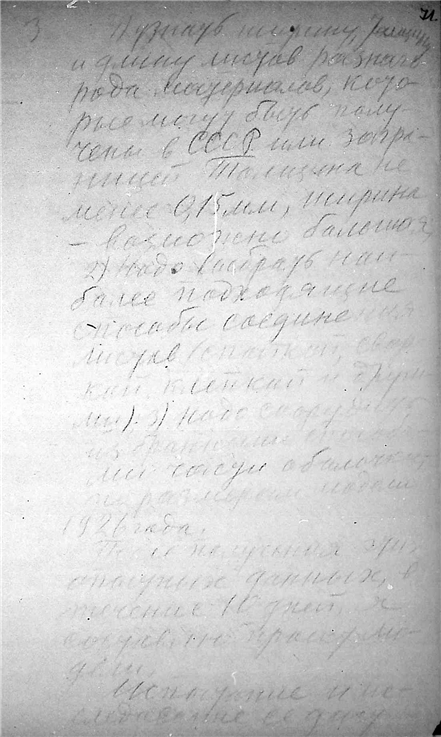 3 Узнать ширину, толщину
и длину листов разного
рода материалов, кото-
рые могут быть полу-
чены в СССР или загра-
ницей. Толщина не
менее 0,15 мм, ширина
– возможно большая,
2) Надо выбрать наи-
более подходящие
способы соединения
листов (спайкой, свар-
кой, клёпкой и други-
ми). 3) Надо соорудить
избранными способа-
ми части оболочки,
по размерам модели
1926 года.
После получения
опытных данных, в
течение 10 дней, я
составлю
дели.
Испытание и ис-
следование